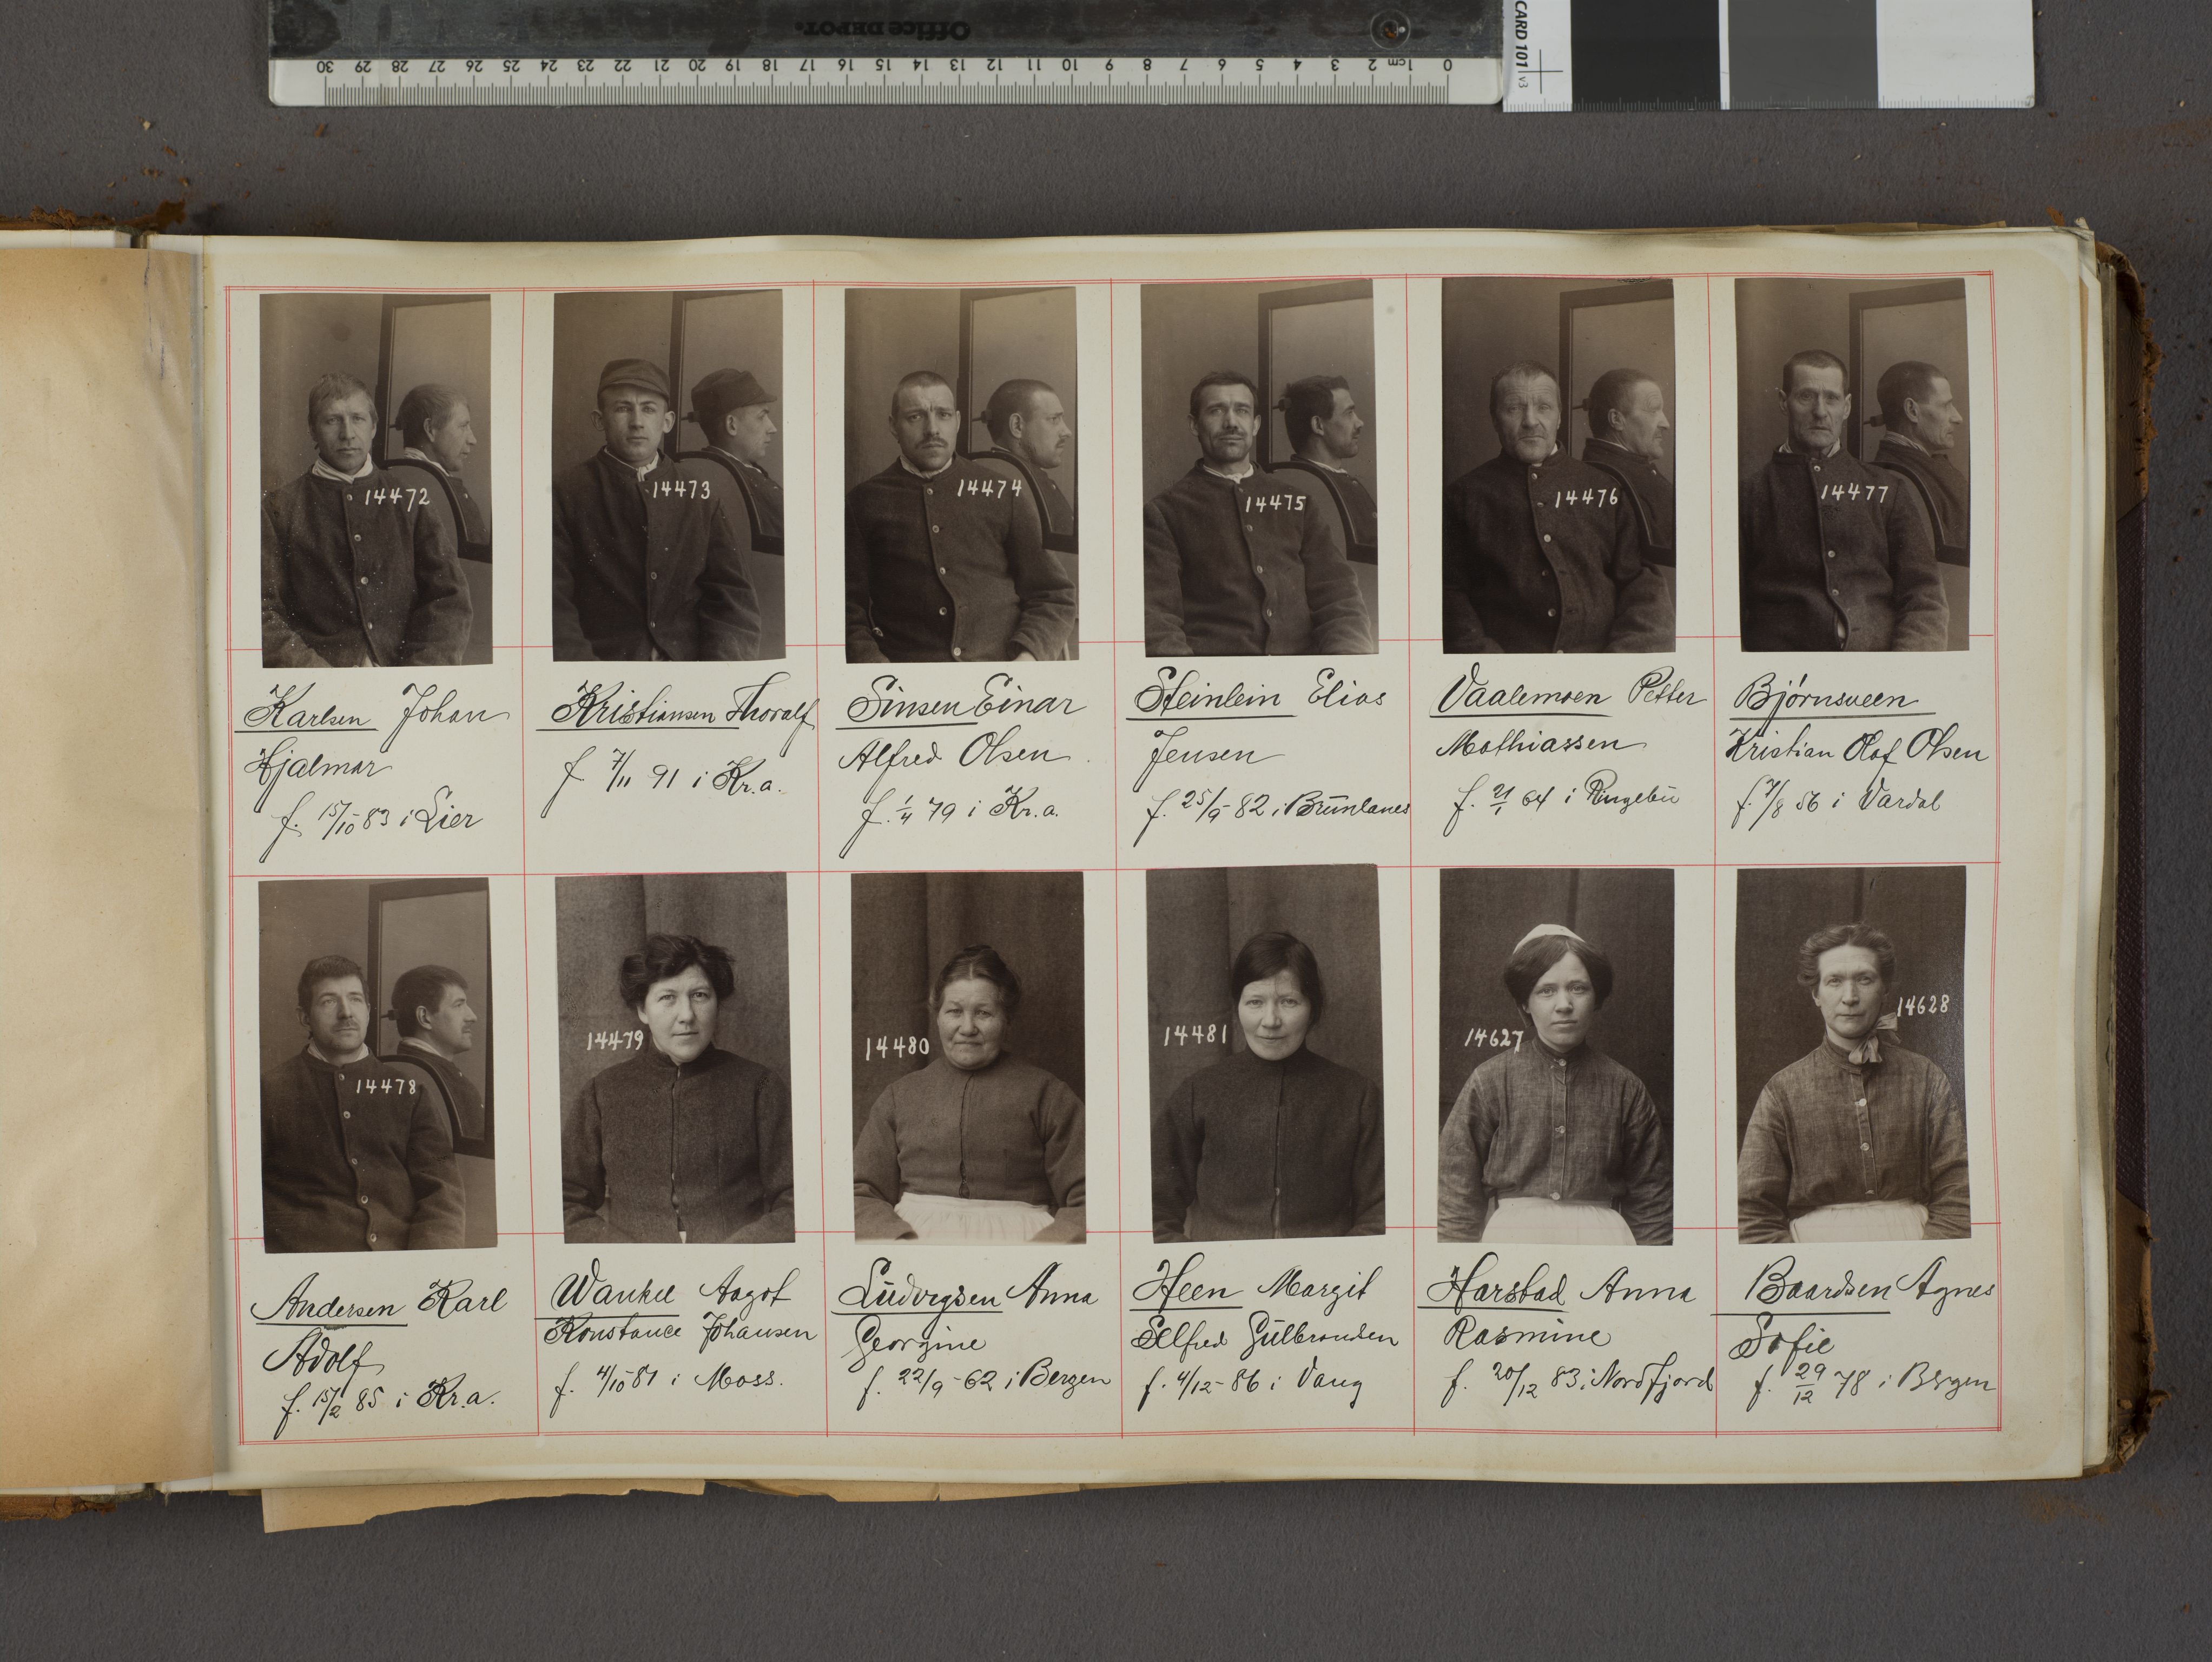 Office DEPOT.
30 29 28 27 26 25 24 23 22 21 20 19 18 17 16 15 14 13 12 11 10 9 8 7 6 5 4 3 2 1cm 0
CARD 101 v3
14472
14473
14474
14475
14476
14477
Karlsen Johan
Hjalmar
f. 15/10 83 i Lier
Kristiansen Thoralf
f 7/11 91 i Kr.a.
Sinsen Einar
Alfred Olsen
f. 1/4 79 i Kr.a.
Steinlein Elias
Jensen
f. 25/9-82 i Brunlanes
Vaalemoen Petter
Mathiassen
f. 21/1 64 i Ringebu
Bjørnsveen
Kristian Olaf Olsen
f. 7/8 56 i Vardal
14478
14479
14480
14481
14627
14628
Andersen Karl
Adolf
f. 15/2 85 i Kr.a.
Wankel Aagot
Konstance Johansen
f. 4/10-81 i Moss.
Ludvigsen Anna
Georgine
f. 22/9-62 i Bergen
Heen Margit
Gulbrandsen
f. 4/12-86 i Vang
Harstad Anna
Rasmine
f. 20/12 83 i Nordfjord
Baardsen Agnes
Sofie
f. 29/12 78 i Bergen